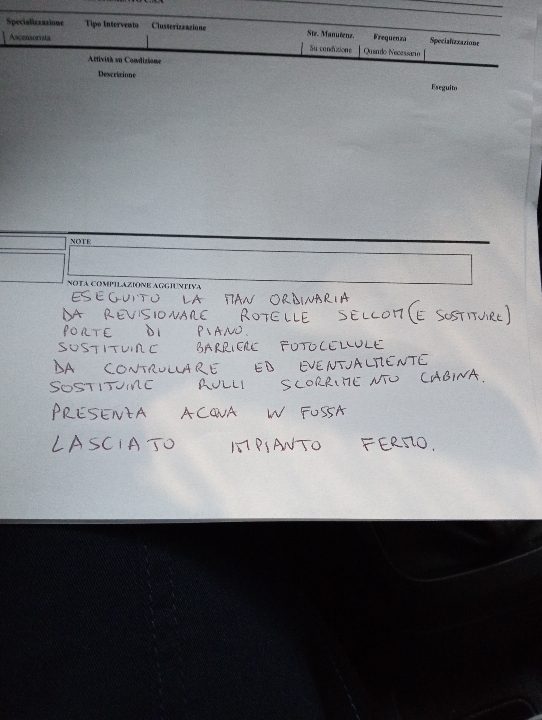 Specializzazione Tipo Intervento Clusterizzazione Str. Manutenz. Frequenza Specializzazione
Ascensorista Su condizione Quando Necessario
Attività su Condizione
Descrizione Eseguito
NOTE
NOTA COMPILAZIONE AGGIUNTIVA
ESEGUITO LA MAN ORDINARIA
DA REVISIONARE ROTELLE SELCOM (E SOSTITUIRE)
PORTE DI PIANO.
SUSTITUIRE BARRIERE FOTOCELLULE
DA CONTROLLARE ED EVENTUALMENTE
SOSTITUIRE RULLI SCORRIMENTO CABINA.
PRESENZA ACQUA IN FOSSA
LASCIATO IMPIANTO FERMO.